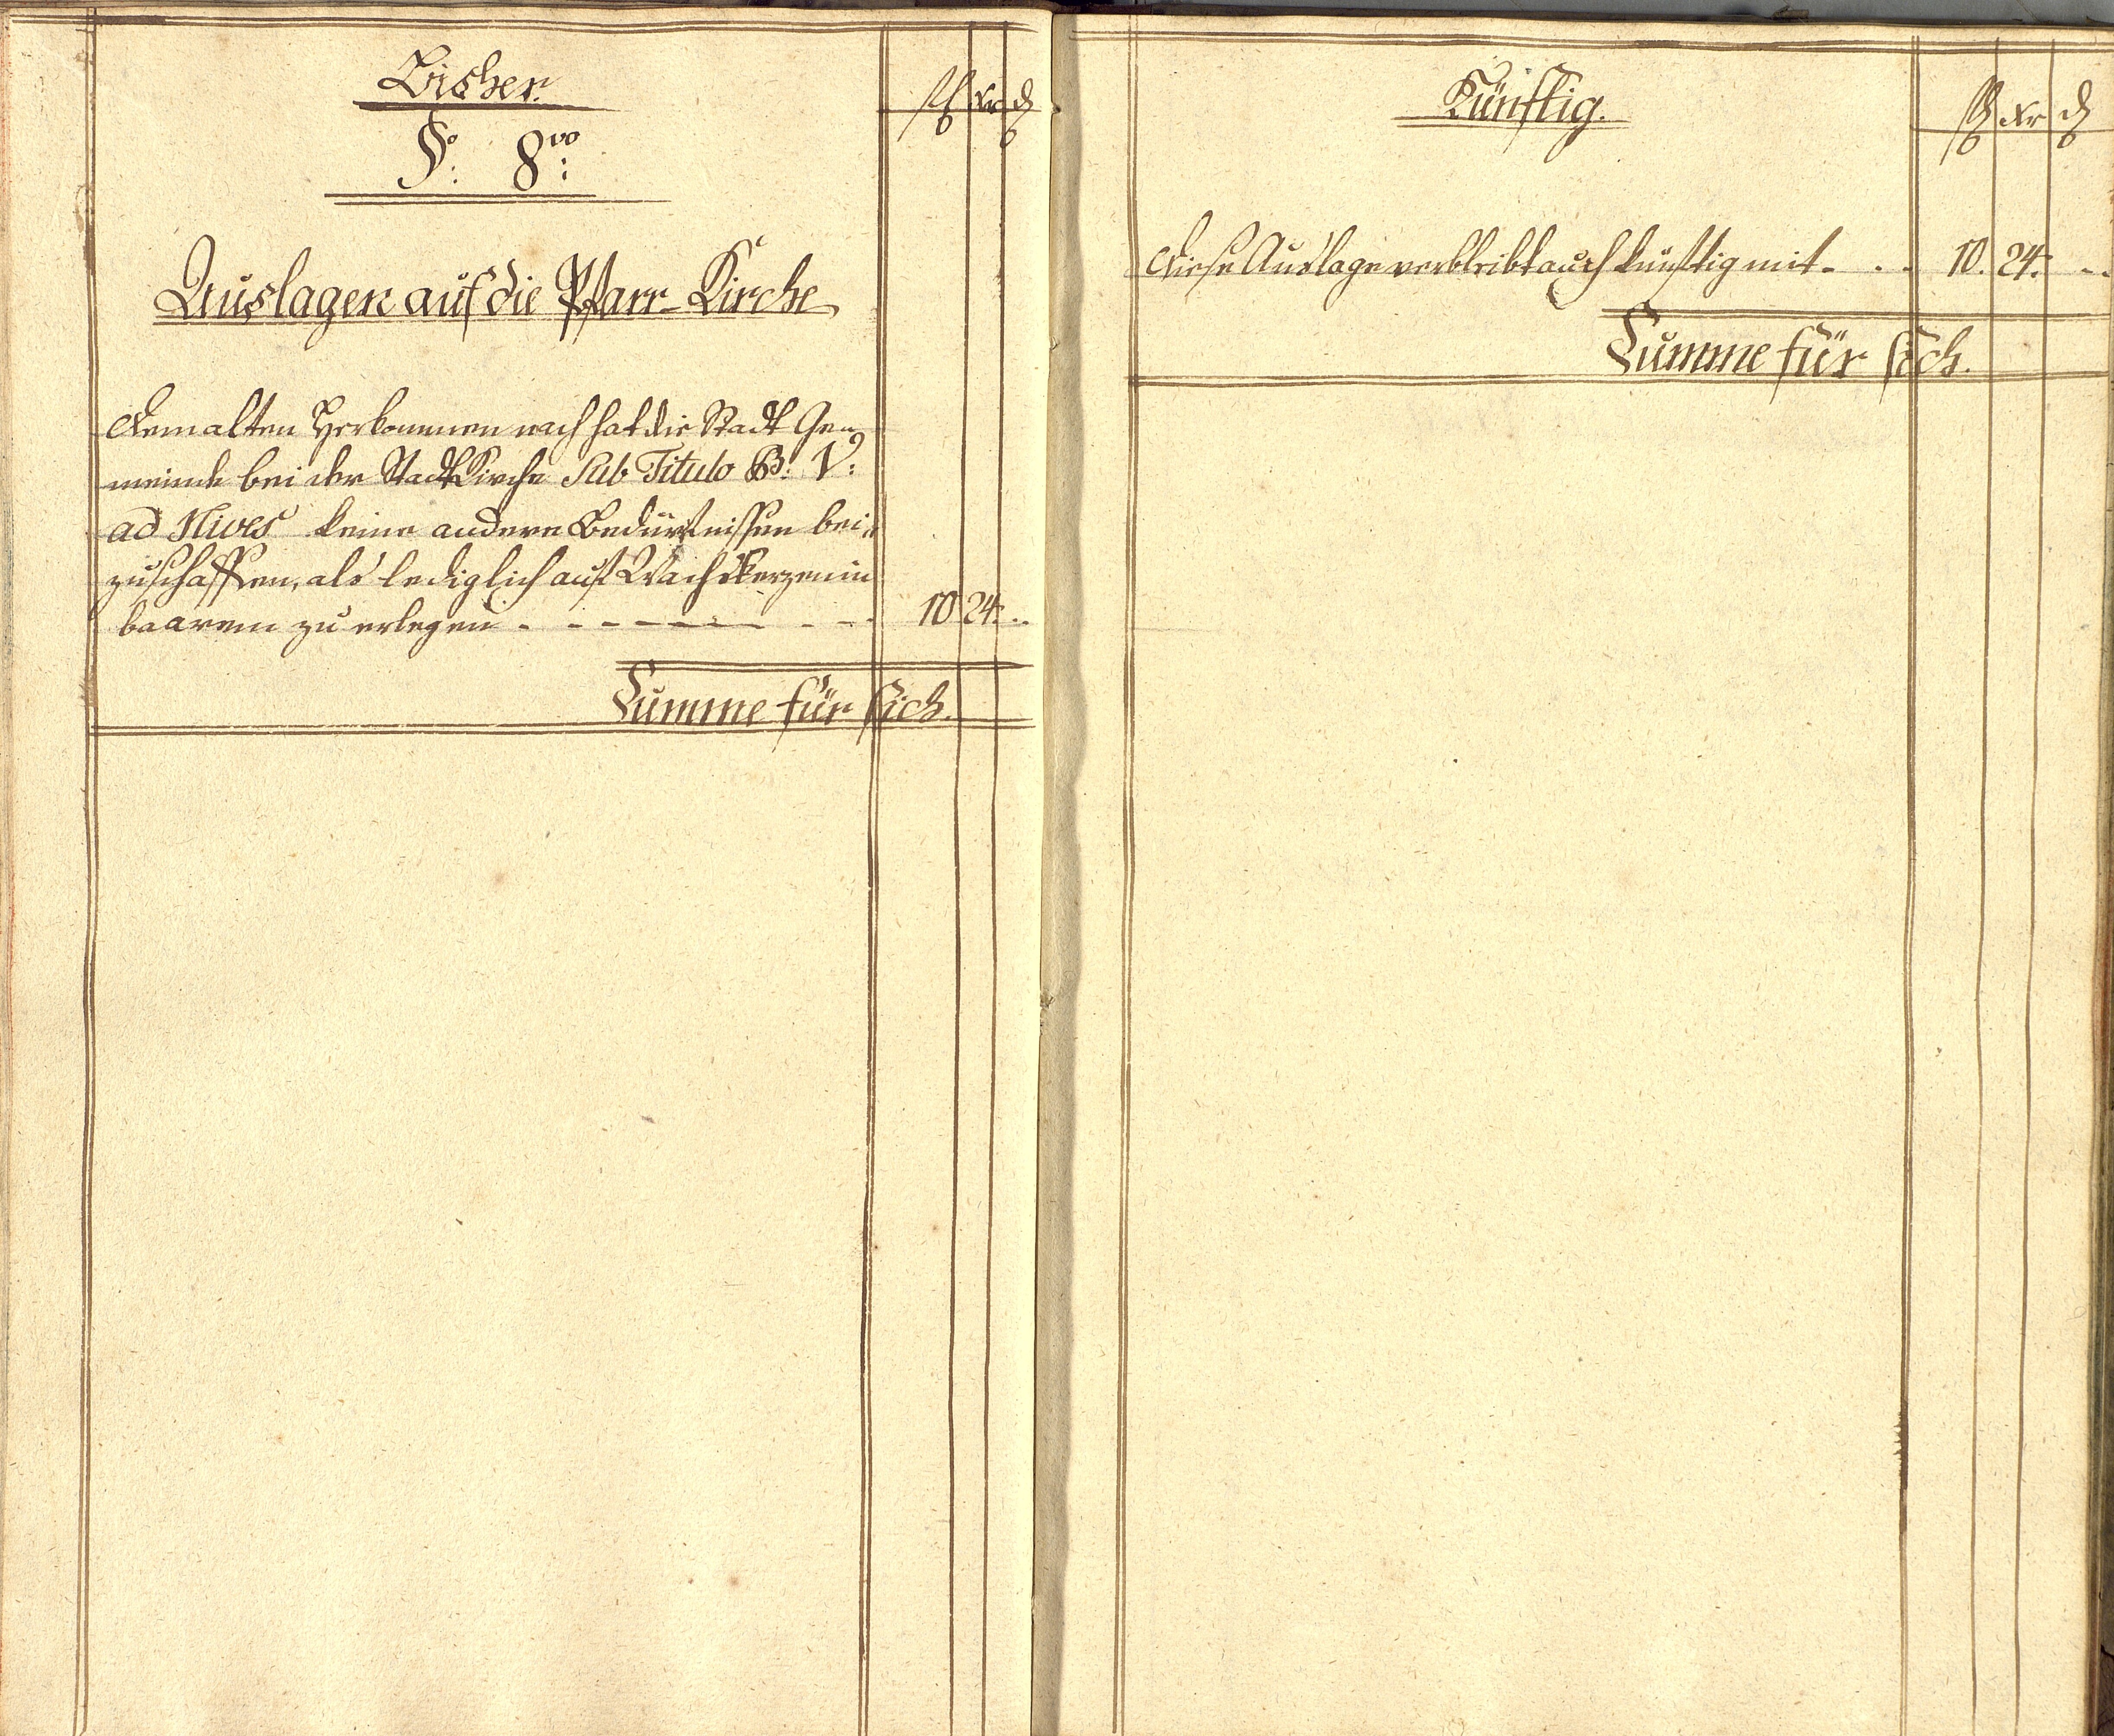 Bisher.
fl xr d
§o: 8vo:
Auslagen auf die Pfarr-Kirche
Dem alten Herkommen nach hat die Stadt Ge=
meinde bei der Stadt Kirche Sub Titulo B: V:
ad Nives keine andere Bedürfnissen bei=
zuschaffen, als lediglich auf Wachskerzen in
baarem zu erlegen . - - - - - - - - 10 24. ..
Summe für sich.
Künftig.
fl xr d
Diese Auslage verbleibt auch künftig mit - . . 10. 24. ..
Summe für sich.